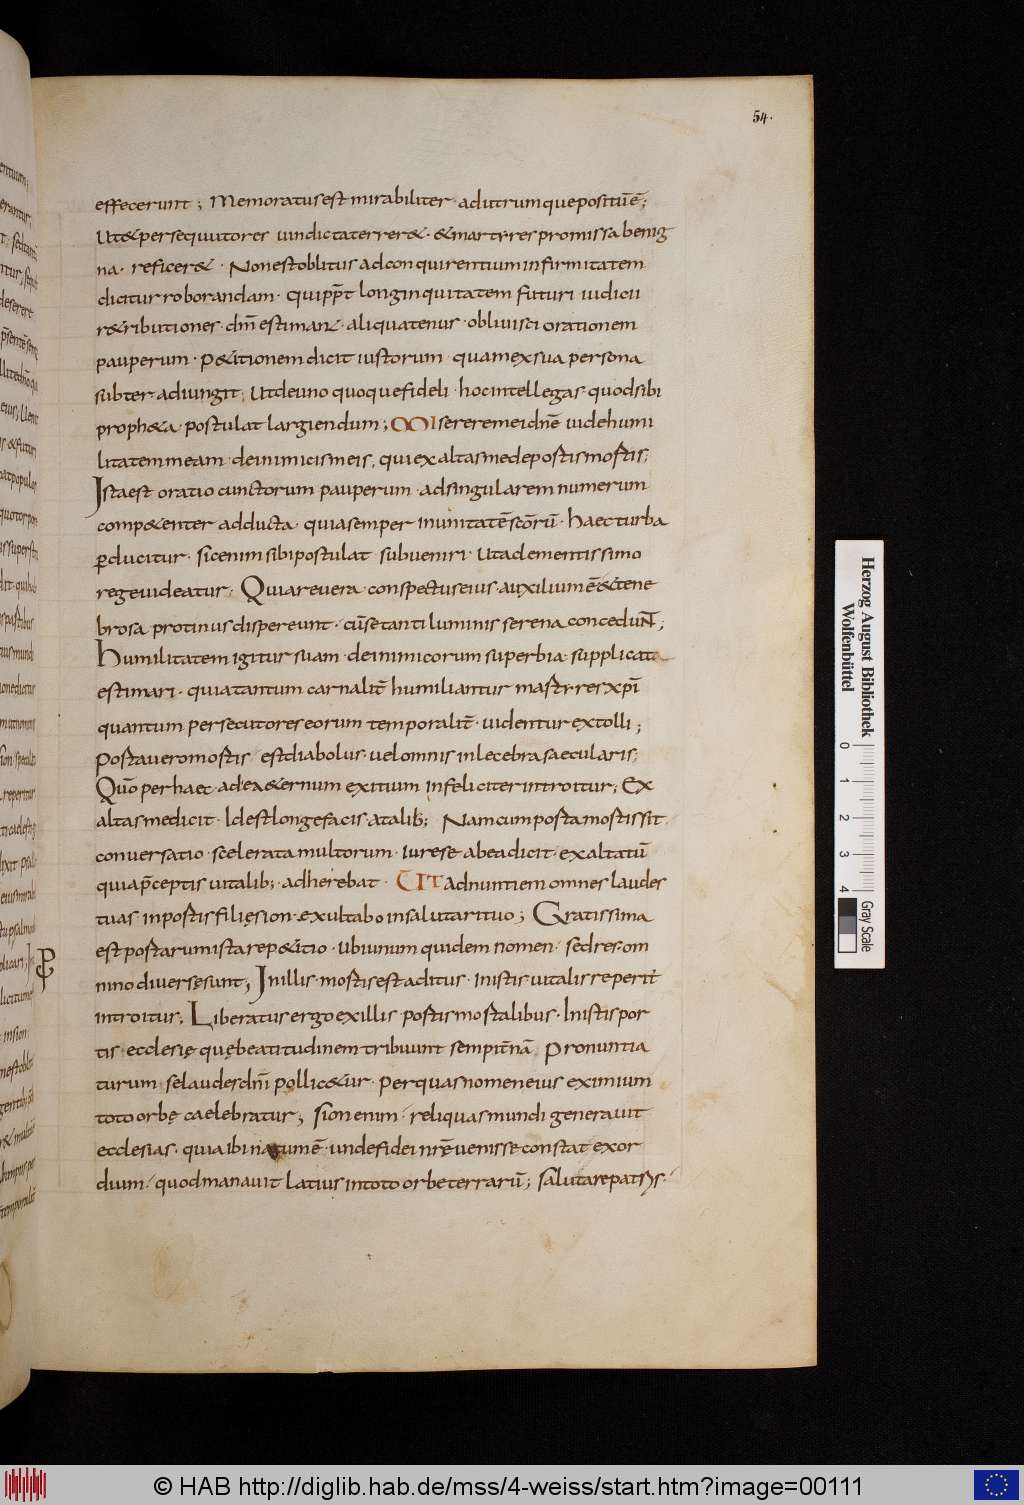 54.
effecerunt; Memoratus est mirabiliter · ad utrumque positum̄ ē;
Ut & persequutores uindicta terrer& · & martyres promissa benig
na · reficer& · Non est oblitus ad conquirentium infirmitatem
dicitur roborandam · quippe longinquitatem futuri iudicii
r&ributiones · dn̄i estimant · aliquatenus · obliuisci orationem
pauperum · P&itionem dicit iustorum · quam ex sua persona
subter adiungit; Ut de uno quoque fideli · hoc intellegas · quod sibi
proph&a · postulat largiendum; Miserere mei dn̄e uide humi
litatem meam · de inimicis meis, qui exaltas me de portis mortis;
Ista est oratio cunctorum pauperum · ad singularem numerum
comp&enter adducta · quia semper in unitatē sc̄orū · haec turba
p̄ducitur · sic enim sibi postulat subueniri · ut a clementissimo
rege uideatur · Quia reuera conspectus eius · auxilium ē & tene
brosa protinus dispereunt · cū se tanti luminis serena concedunt;
Humilitatem igitur suam · de inimicorum superbia · supplicat
estimari · quia tantum carnalit̄ humiliantur martyres xp̄i
quantum persecutores eorum temporalit̄ · uidentur extolli;
Porta uero mortis / est diabolus · uel omnis inlecebra saecularis;
Quō per haec · ad ex&ernum exitium infeliciter introitur; Ex
altas me dicit · Id est longe facis a talib; Nam cum porta mortis sit
conuersatio · scelerata multorum · iure se ab ea dicit · exaltatū
quia p̄ceptis uitalib; · adherebat · UT Adnuntiem omnes laudes
tuas in portis filię sion · exultabo in salutari tuo; Gratissima
est portarum ista rep&itio · ubi unum quidem nomen · sed res om
nino diuersę sunt; In illis · mortis est aditus · in istis · uitalis reperit̄
introitus; Liberatus ergo ex illis · portis mortalibus · In istis por
tis · ecclesię quę beatitudinem tribuunt sempit̄nā Pronuntia
turum · se laudes dn̄i pollic&ur · per quas nomen eius eximium
toto orbe caelebratur; Sion enim · reliquas mundi generauit
ecclesias · quia ibi natum ē · unde fidei nr̄ę uenisse constat exor
dium / quod manauit latius in toto orbe terrarū; Salutare patris ·
Herzog August Bibliothek
Wolfenbüttel
0 1 2 3 4
Gray Scale
© HAB http://diglib.hab.de/mss/4-weiss/start.htm?image=00111